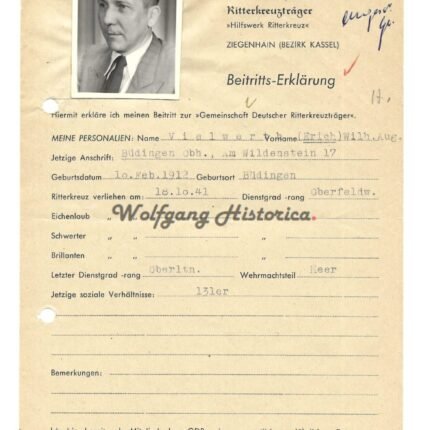 Ritterkreuzträger
»Hilfswerk Ritterkreuz«
ZIEGENHAIN (BEZIRK KASSEL)
Beitritts-Erklärung
Hiermit erkläre ich meinen Beitritt zur »Gemeinschaft Deutscher Ritterkreuzträger«.
MEINE PERSONALIEN: Name Vielwerth Vorname (Erich)Wilh.Aug.
Jetzige Anschrift: Büdingen Obh., Am Wildenstein 17
Geburtsdatum 10.Feb.1912 Geburtsort Büdingen
Ritterkreuz verliehen am 18.10.41 Dienstgrad -rang Oberfeldw.
Eichenlaub „ „ „ „
Wolfgang Historica.
Schwerter „ „ „ „
Brillanten „ „ „ „
Letzter Dienstgrad -rang Oberltn. Wehrmachtsteil Heer
Jetzige soziale Verhältnisse: 131er
Bemerkungen: